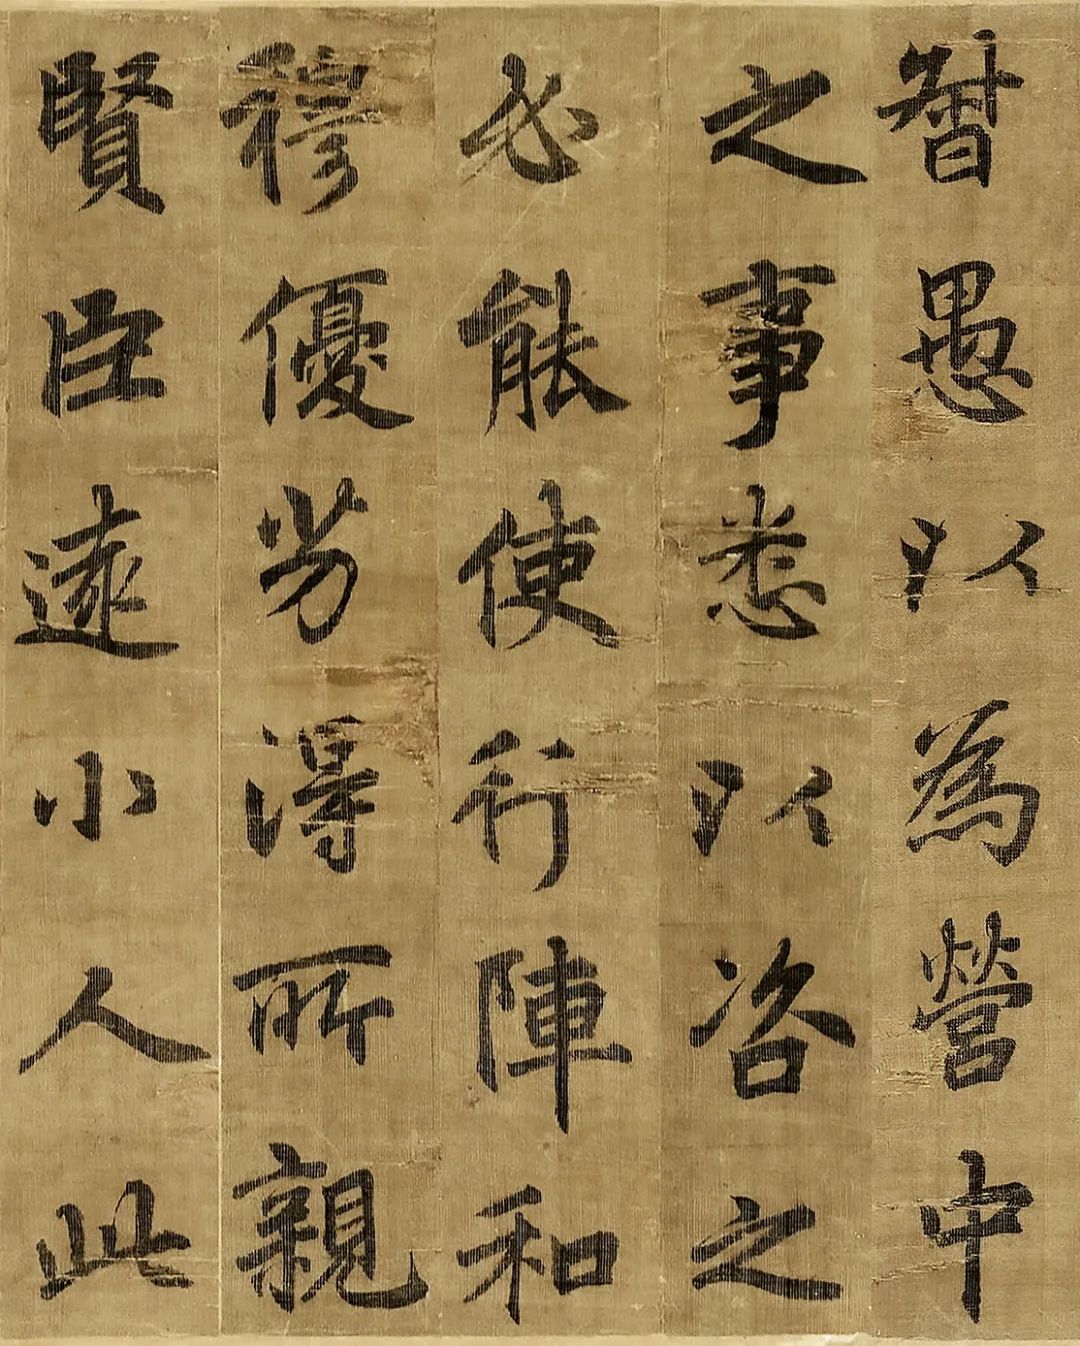 督愚以為營中
之事悉以咨之
必能使行陣和
穆優劣得所親
賢臣遠小人此